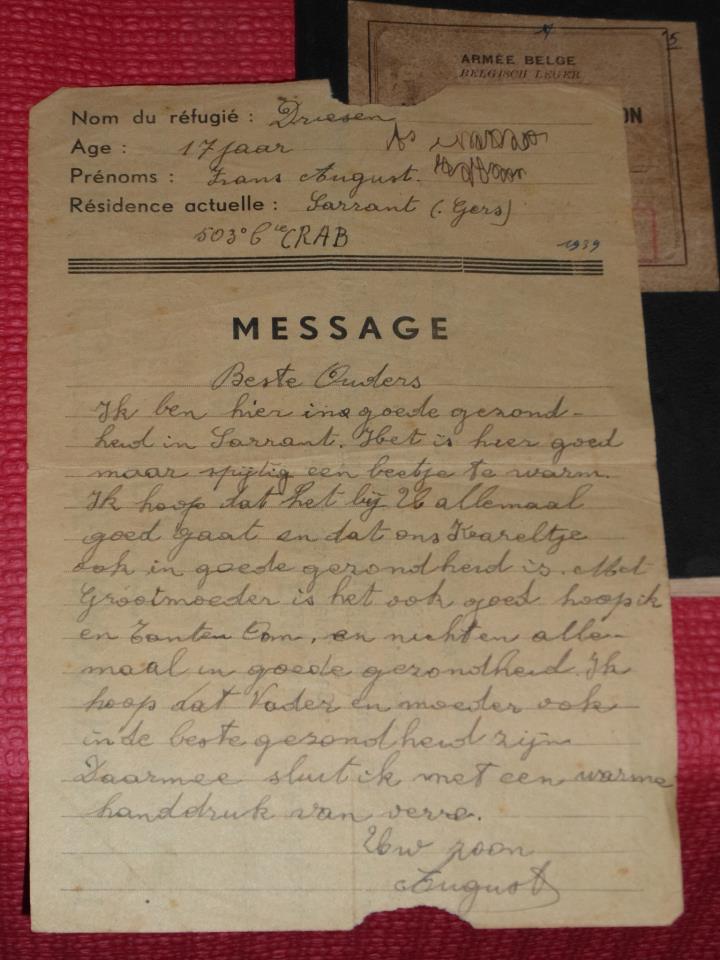 ARMÉE BELGE
BELGISCH LEGER
ON
15
Nom du réfugié : Driesen
Age : 17 jaar
Prénoms : Frans August.
Résidence actuelle : Sarrant (. Gers)
503° Cie CRAB
1939
MESSAGE
Beste Ouders
Ik ben hier in goede gezond-
heid in Sarrant. Het is hier goed
maar spijtig een beetje te warm.
Ik hoop dat het bij U allemaal
goed gaat en dat ons Kareltje
ook in goede gezondheid is. Met
Grootmoeder is het ook goed hoop ik
en Tante en Om, en nichten alle-
maal in goede gezondheid. Ik
hoop dat Vader en moeder ook
in de beste gezondheid zijn
Daarmee sluit ik met een warme
handdruk van verre.
Uw zoon
August